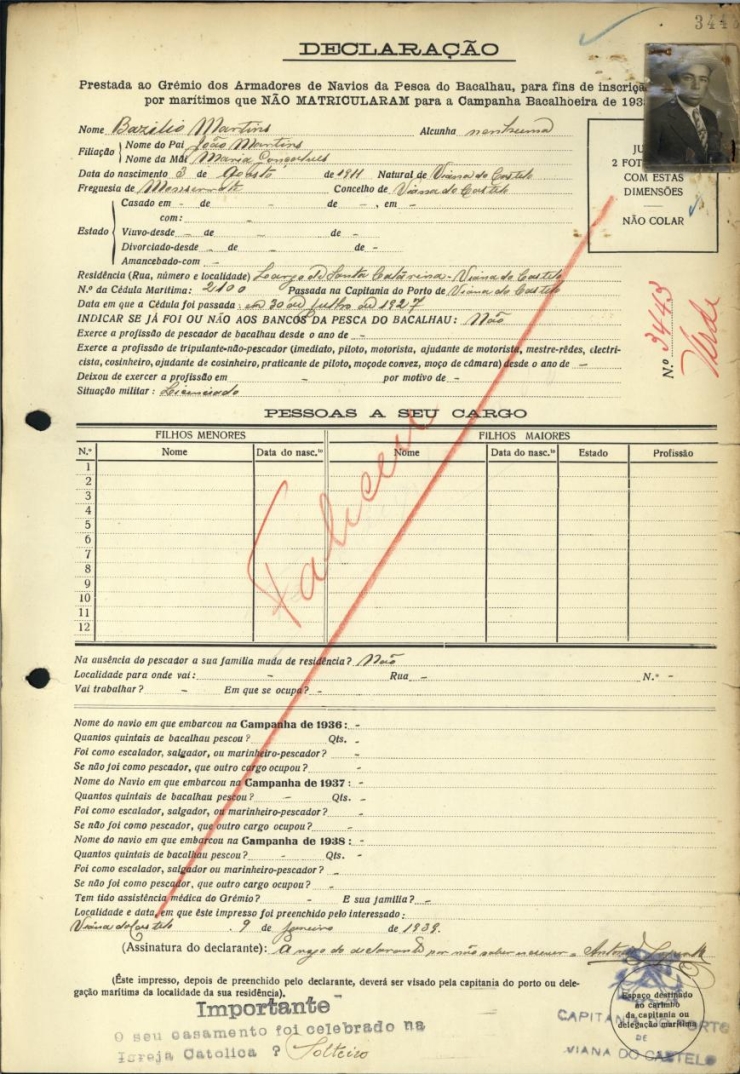 3443
DECLARAÇÃO
Prestada ao Grémio dos Armadores de Navios da Pesca do Bacalhau, para fins de inscriçã
por marítimos que NÃO MATRICULARAM para a Campanha Bacalhoeira de 193
Nome Bazilio Martins Alcunha nenhuma
Filiação Nome do Pai João Martins
Nome da Mãe Maria Gonçalves
Data do nascimento 3 de Agosto de 1911 Natural de Viana do Castelo
Freguesia de Monserrate Concelho de Viana do Castelo
JU
2 FOT
COM ESTAS
DIMENSÕES
NÃO COLAR
Estado
Casado em - de - de - , em -
com: -
Viuvo-desde - de - de -
Divorciado-desde - de - de -
Amancebado-com -
Residência (Rua, número e localidade) Largo de Santa Catarina - Viana do Castelo
N.º da Cédula Marítima: 2100 Passada na Capitania do Porto de Viana do Castelo
Data em que a Cédula foi passada: em 30 de Julho de 1927
INDICAR SE JÁ FOI OU NÃO AOS BANCOS DA PESCA DO BACALHAU: Não
Exerce a profissão de pescador de bacalhau desde o ano de -
Exerce a profissão de tripulante-não-pescador (imediato, piloto, motorista, ajudante de motorista, mestre-rêdes, electri-
cista, cosinheiro, ajudante de cosinheiro, praticante de piloto, moço de convez, moço de câmara) desde o ano de -
Deixou de exercer a profissão em - por motivo de -
Situação militar: Licenciado
N.º 3443
Verde
PESSOAS A SEU CARGO
FILHOS MENORES FILHOS MAIORES
N.º Nome Data do nasc.to Nome Data do nasc.to Estado Profissão
1
2
3
4
5
6
7
8
9
10
11
12
Faleceu
Na ausência do pescador a sua família muda de residência? Não
Localidade para onde vai: - Rua - N.º -
Vai trabalhar? - Em que se ocupa? -
Nome do navio em que embarcou na Campanha de 1936: -
Quantos quintais de bacalhau pescou? - Qts. -
Foi como escalador, salgador, ou marinheiro-pescador? -
Se não foi como pescador, que outro cargo ocupou? -
Nome do Navio em que embarcou na Campanha de 1937: -
Quantos quintais de bacalhau pescou? - Qts. -
Foi como escalador, salgador, ou marinheiro-pescador? -
Se não foi como pescador, que outro cargo ocupou? -
Nome do navio em que embarcou na Campanha de 1938: -
Quantos quintais de bacalhau pescou? - Qts. -
Foi como escalador, salgador ou marinheiro-pescador? -
Se não foi como pescador, que outro cargo ocupou? -
Tem tido assistência médica do Grémio? - E sua família? -
Localidade e data em que êste impresso foi preenchido pelo interessado:
Viana do Castelo . 9 de Janeiro de 1939.
(Assinatura do declarante): A rogo do declarante por não saber escrever
(Êste impresso, depois de preenchido pelo declarante, deverá ser visado pela capitania do porto ou dele-
gação marítima da localidade da sua residência).
Importante
O seu casamento foi celebrado na
Igreja Catolica ? Solteiro
Espaço destinado
ao carimbo
da capitania ou
delegação marítima
CAPITANIA DO PORTO
DE
VIANA DO CASTELO